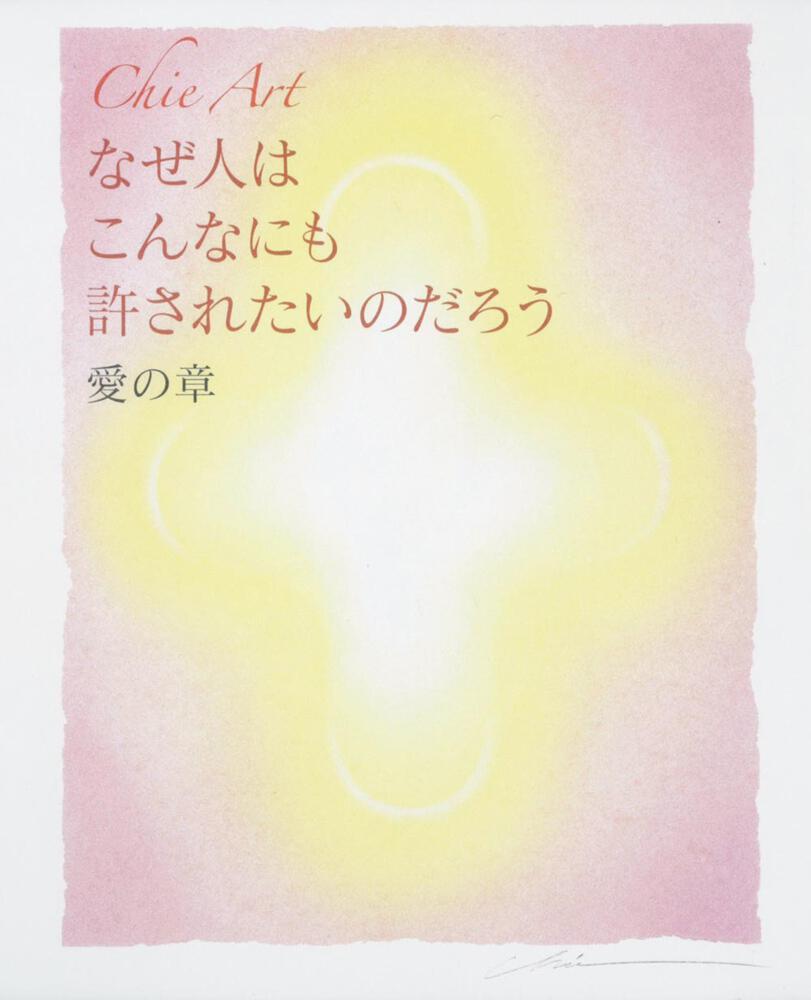 Chie Art
なぜ人は
こんなにも
許されたいのだろう
愛の章
Chie